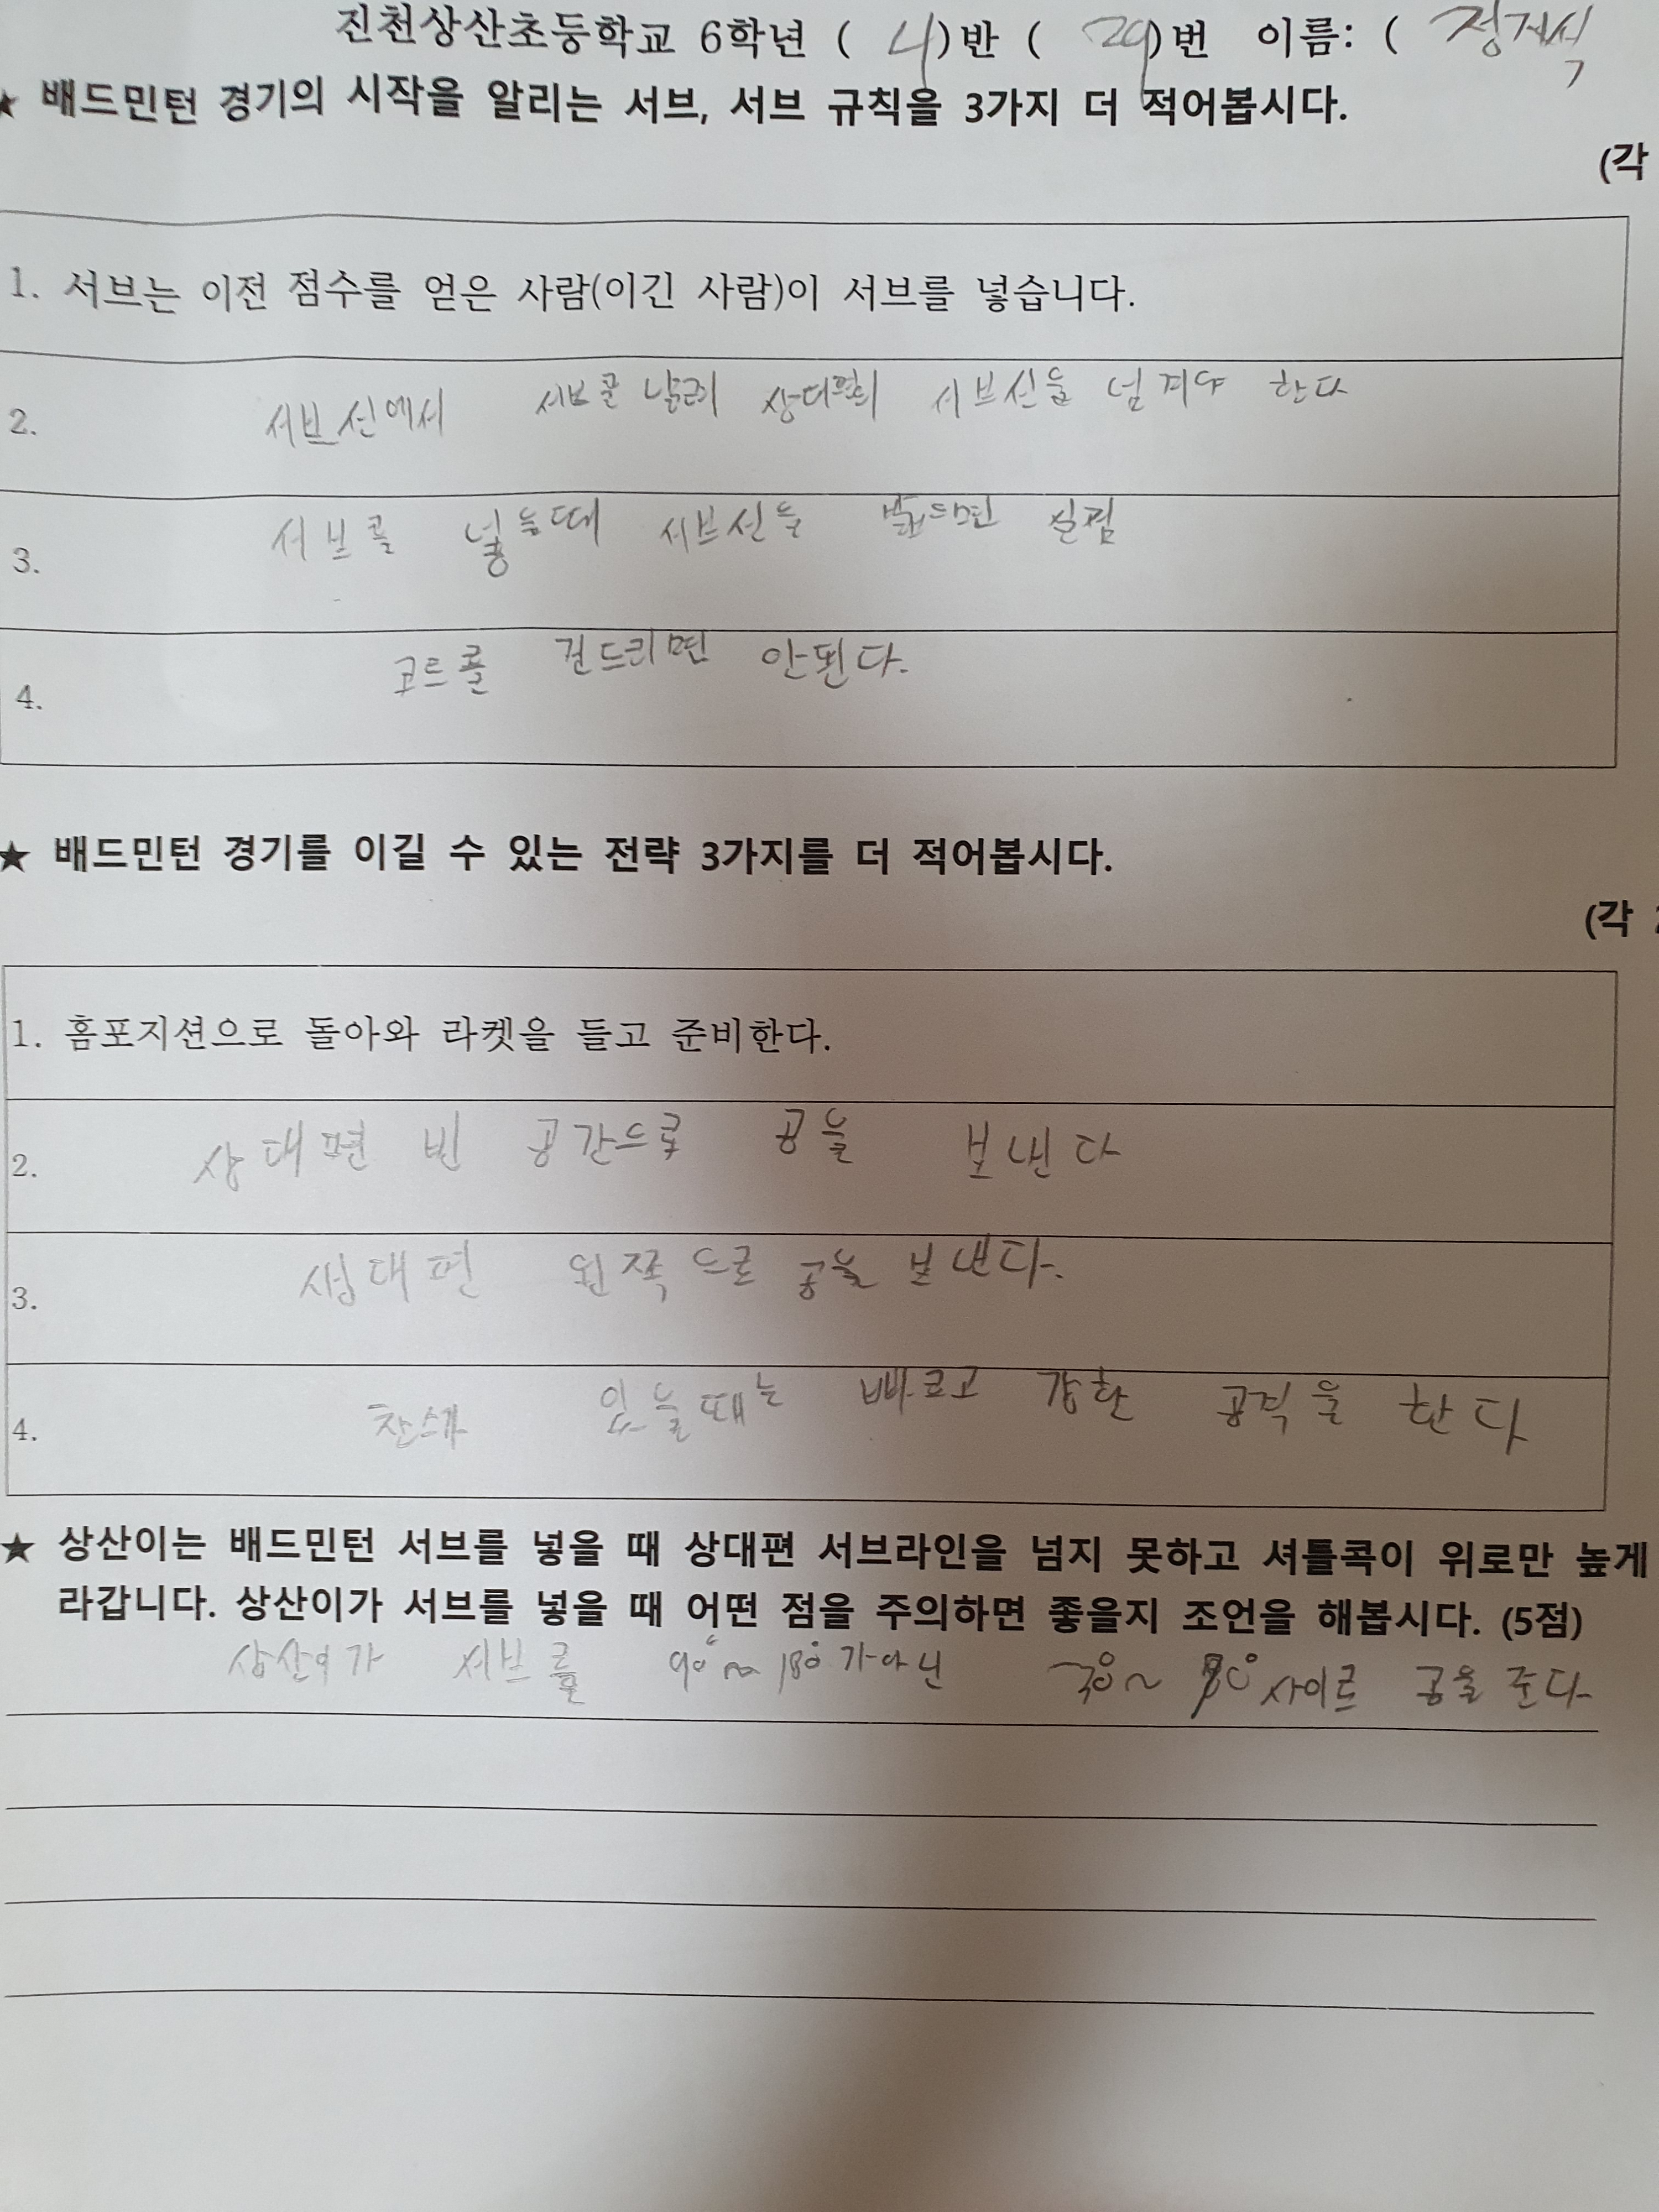 진천상산초등학교 6학년 ( 4)반 ( 29)번 이름: (
★ 배드민턴 경기의 시작을 알리는 서브, 서브 규칙을 3가지 더 적어봅시다.
(각
1. 서브는 이전 점수를 얻은 사람(이긴 사람)이 서브를 넣습니다.
2. 서브선에서 서브를 상대편의 서브선을 넘겨야 한다
3. 서브를 넣을때 서브선을 실점
4. 코트를 건드리면 안된다.
★ 배드민턴 경기를 이길 수 있는 전략 3가지를 더 적어봅시다.
(각 2
1. 홈포지션으로 돌아와 라켓을 들고 준비한다.
2. 상대편 빈 공간으로 공을 보낸다
3. 상대편 왼쪽으로 공을 보낸다.
4. 찬스가 있을때는 빠르고 강한 공격을 한다
★ 상산이는 배드민턴 서브를 넣을 때 상대편 서브라인을 넘지 못하고 셔틀콕이 위로만 높게
라갑니다. 상산이가 서브를 넣을 때 어떤 점을 주의하면 좋을지 조언을 해봅시다. (5점)
상산이가 서브를 90°~180°가아닌 사이로 공을 준다